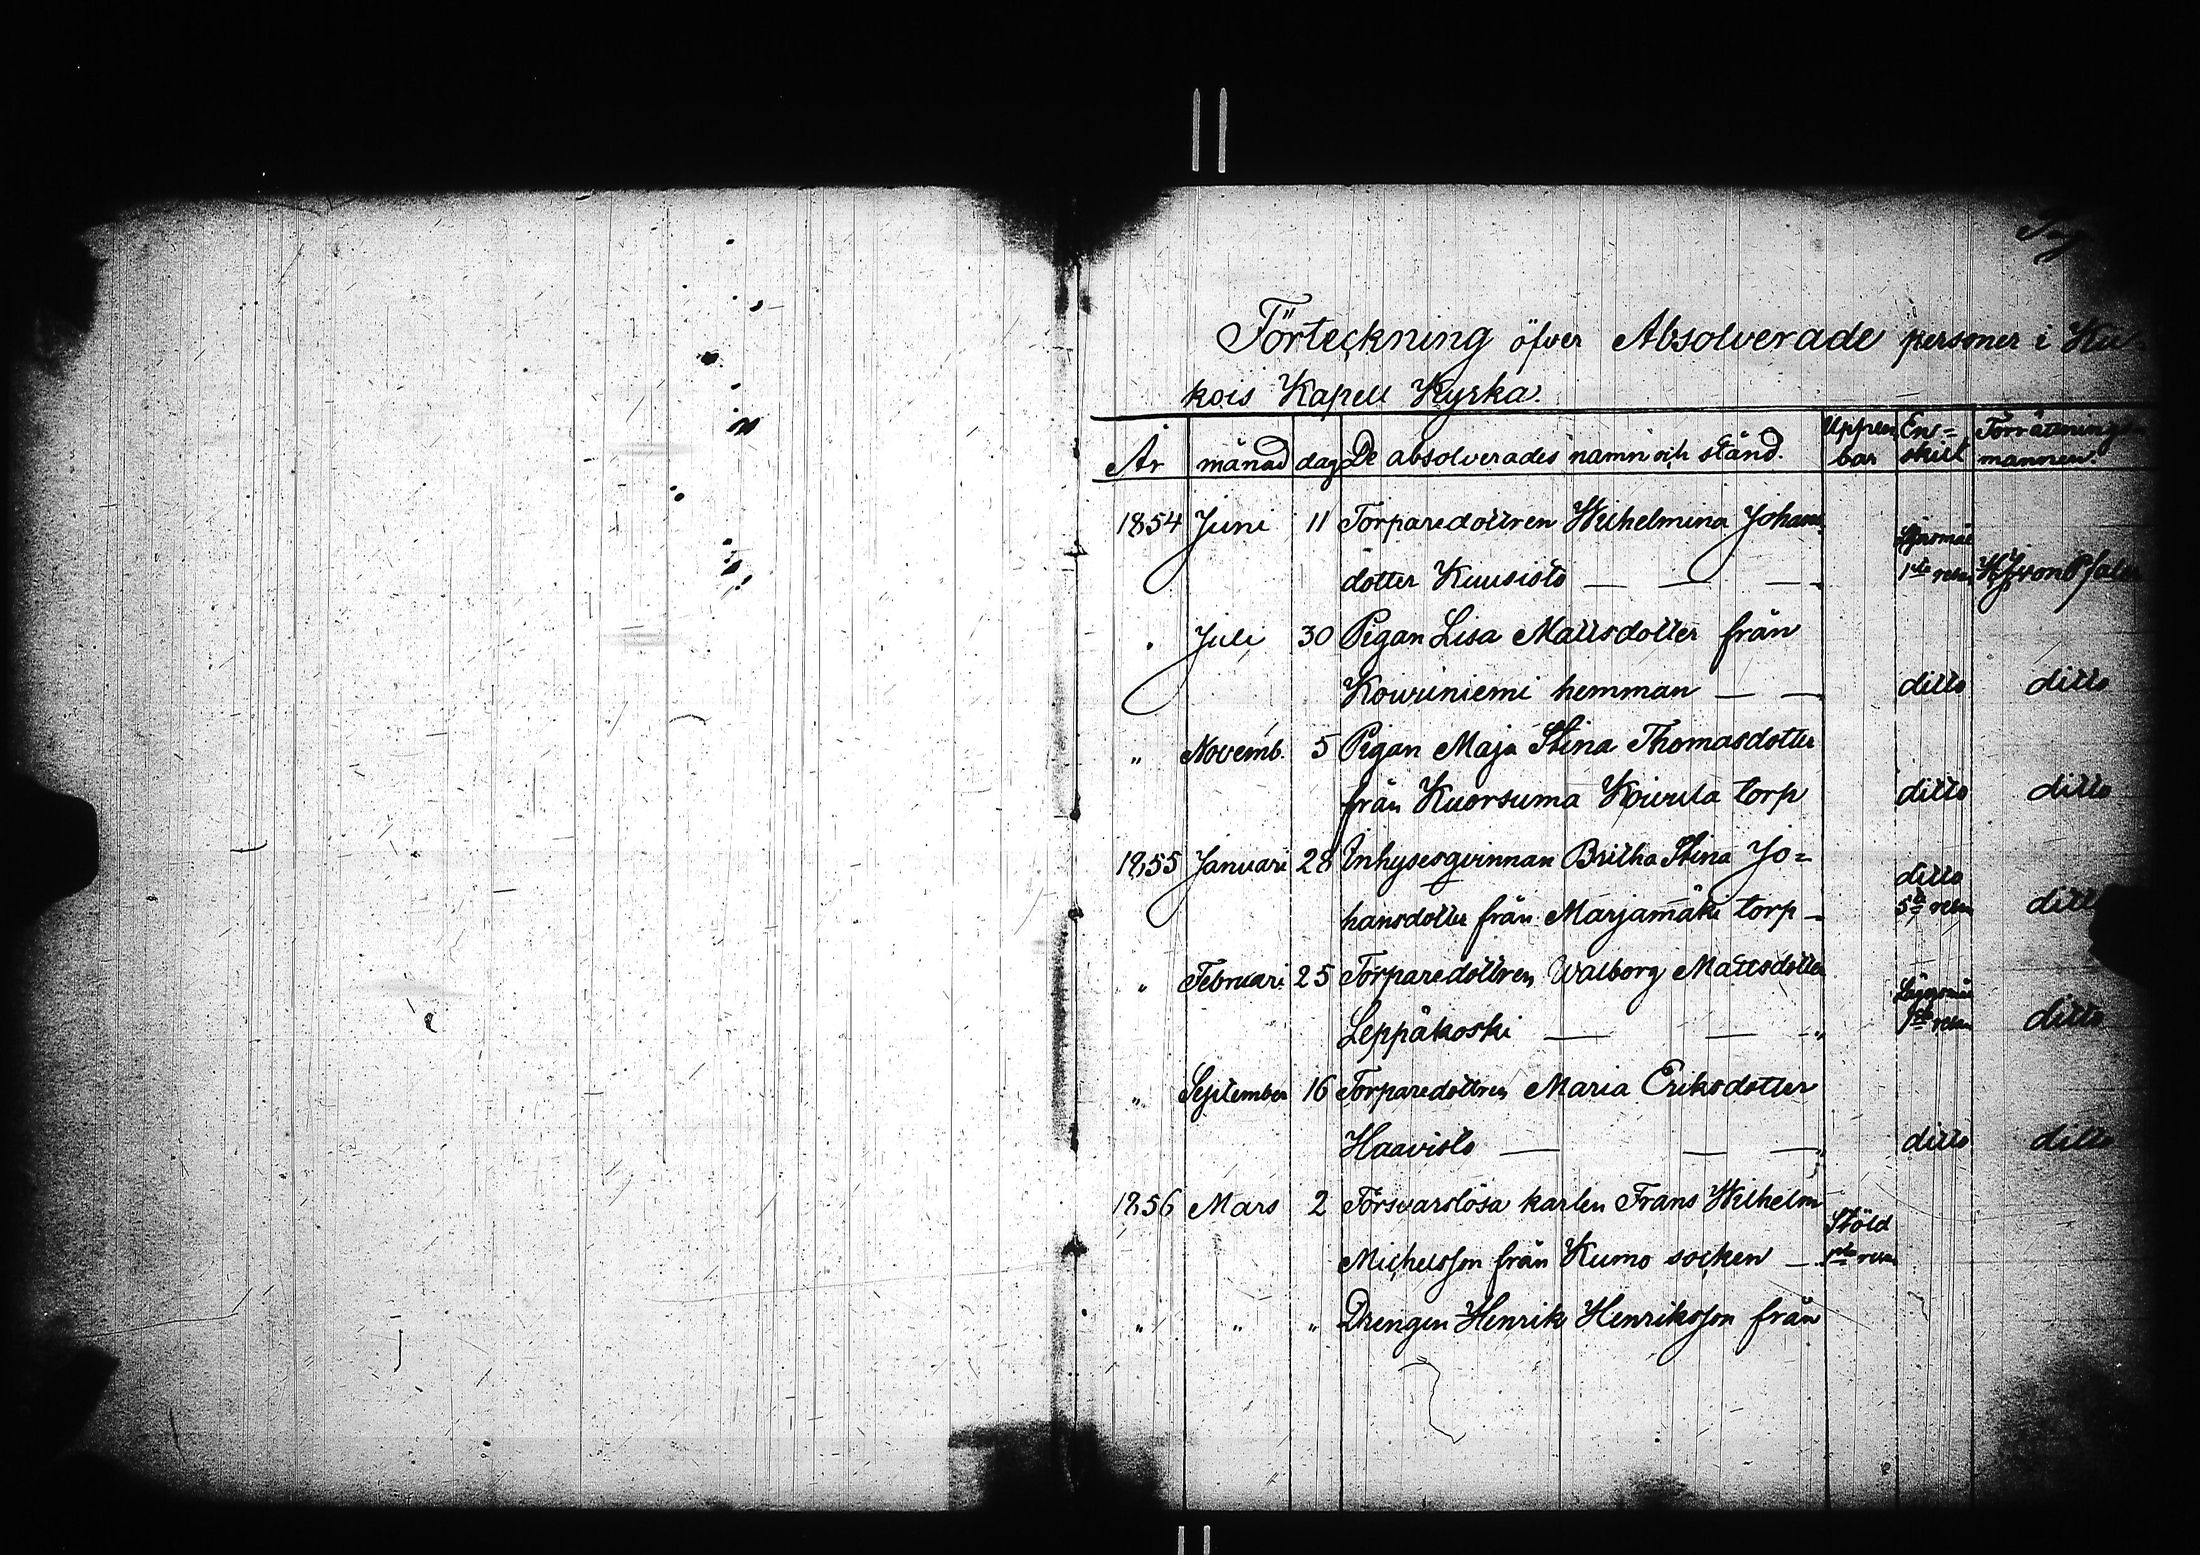 Förteckning öfver Absolverade personer i Kii-
kois Kapell Kyrka
År månad dag De absolverades namn och stånd. Uppen bar En= skilt Förrättnings mannen.
1854 Juni 11 Torparedottren Wilhelmina Johans
dotter Kuusisto — — — 1sta resan
" Juli 30 Pigan Lisa Mattsdotter från
Kouviniemi hemman — — ditto ditto
" Novemb. 5 Pigan Maja Stina Thomasdotter
från Kuorsuma Koivula torp ditto ditto
1855 Januari 28 Inhysesqvinnan Britha Stina Jo= ditto
hansdotter från Marjamäki torp — 5te resan ditto
" Februari 25 Torparedottren Walborg Mattsdotter Lägersmål
Leppäkoski — — " 1sta resan ditto
" September 16 Torparedottren Maria Eriksdotter
Haavisto — — — ditto ditto
1856 Mars 2 Försvarslösa karlen Frans Wilhelm Stöld
Michelsson från Kumo socken — 1sta resan
" " " Drengen Henrik Henriksson från